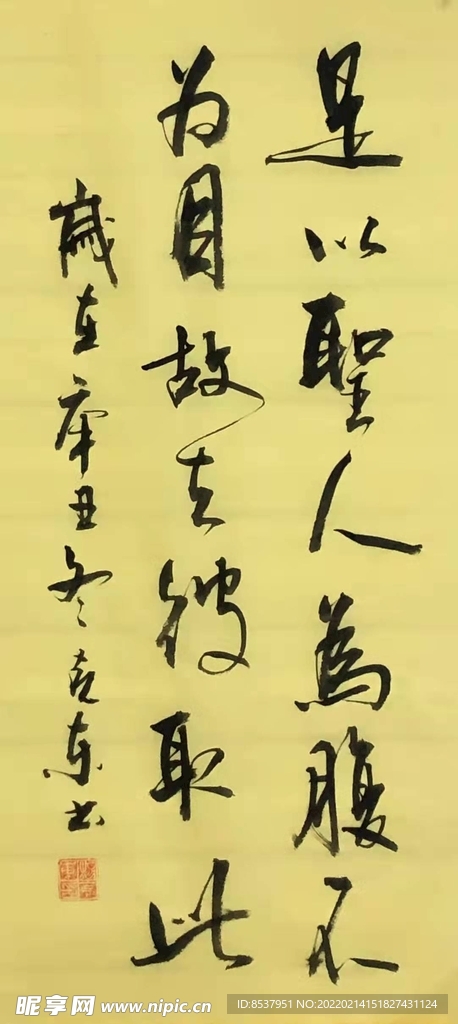 是以聖人為腹不
为目故去彼取此
歲在辛丑冬克东书
昵享网 www.nipic.cn
ID:8537951 NO:20220214151827431124